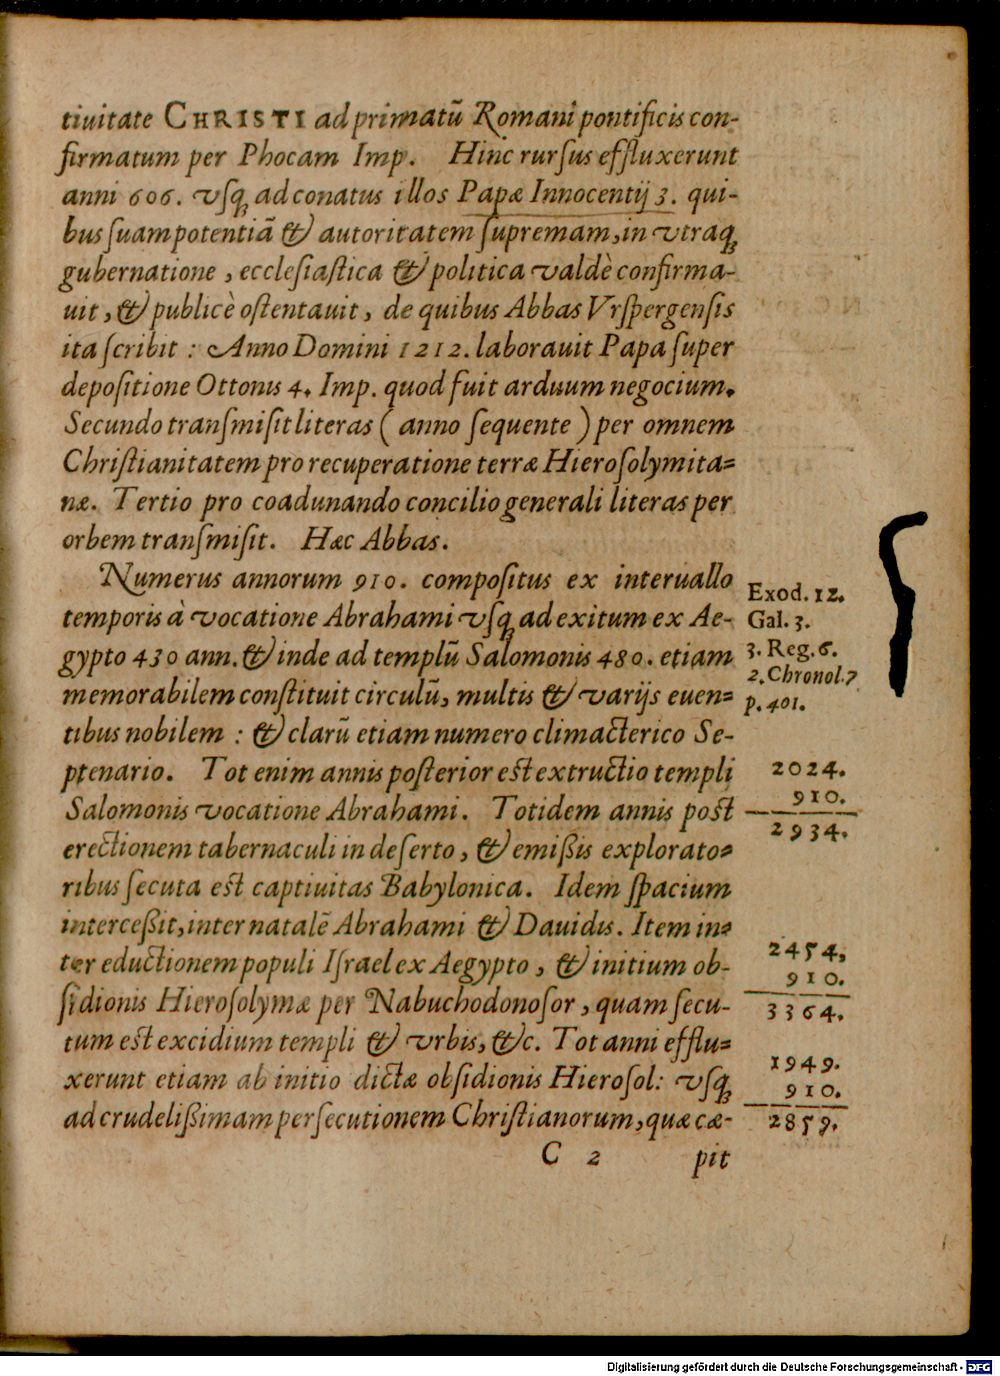 tiuitate CHRISTI ad primatū Romani pontificis con-
firmatum per Phocam Imp. Hinc rursus effluxerunt
anni 606. vsq; ad conatus illos Papæ Innocentij 3. qui-
bus suam potentiā & autoritatem supremam, in vtraq;
gubernatione, ecclesiastica & politica valdè confirma-
uit, & publicè ostentauit, de quibus Abbas Vrspergensis
ita scribit : Anno Domini 1212. laborauit Papa super
depositione Ottonis 4. Imp. quod fuit arduum negocium.
Secundo transmisit literas ( anno sequente ) per omnem
Christianitatem pro recuperatione terræ Hierosolymita=
næ. Tertio pro coadunando concilio generali literas per
orbem transmisit. Hæc Abbas.
Numerus annorum 910. compositus ex interuallo
temporis à vocatione Abrahami vsq; ad exitum ex Ae-
gypto 430 ann. & inde ad templū Salomonis 480. etiam
memorabilem constituit circulū, multis & varijs euen=
tibus nobilem : & clarū etiam numero climacterico Se-
ptenario. Tot enim annis posterior est extructio templi
Salomonis vocatione Abrahami. Totidem annis post
erectionem tabernaculi in deserto, & emißis explorato=
ribus secuta est captiuitas Babylonica. Idem spacium
interceßit, inter natalē Abrahami & Dauidis. Item in=
ter eductionem populi Israel ex Aegypto, & initium ob-
sidionis Hierosolymæ per Nabuchodonosor, quam secu-
tum est excidium templi & vrbis, &c. Tot anni efflu=
xerunt etiam ab initio dictæ obsidionis Hierosol: vsq;
ad crudelißimam persecutionem Christianorum, quæ cæ-
C 2 pit
Exod. 12.
Gal. 3.
3. Reg. 6.
2. Chronol. 7
p. 401.
2024.
910.
2934.
2454,
910.
3364.
1949.
910.
2859.
Digitalisierung gefördert durch die Deutsche Forschungsgemeinschaft - DFG